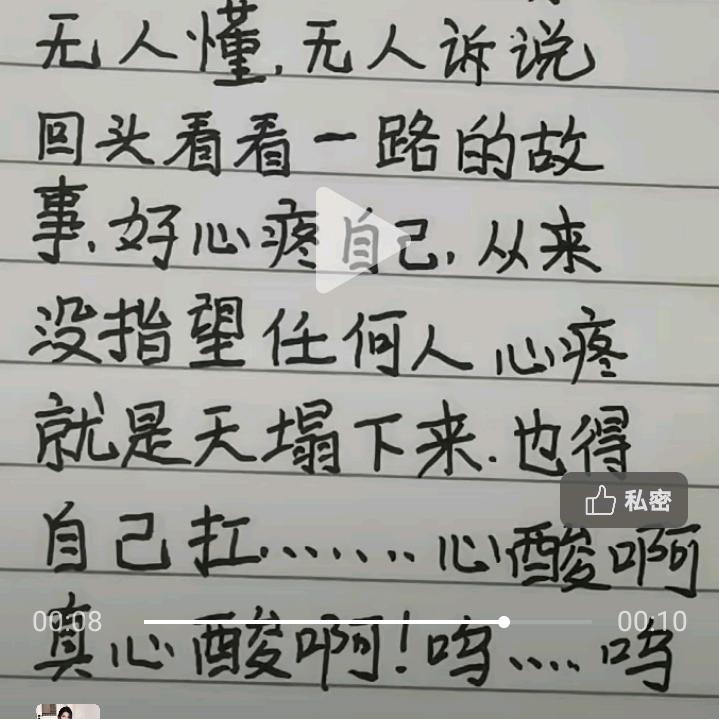 无人懂,无人诉说
回头看看一路的故
事,好心疼自己,从来
没指望任何人心疼
就是天塌下来.也得
私密
自己扛.......心酸啊
00:08
00:10
真心酸啊!呜....呜